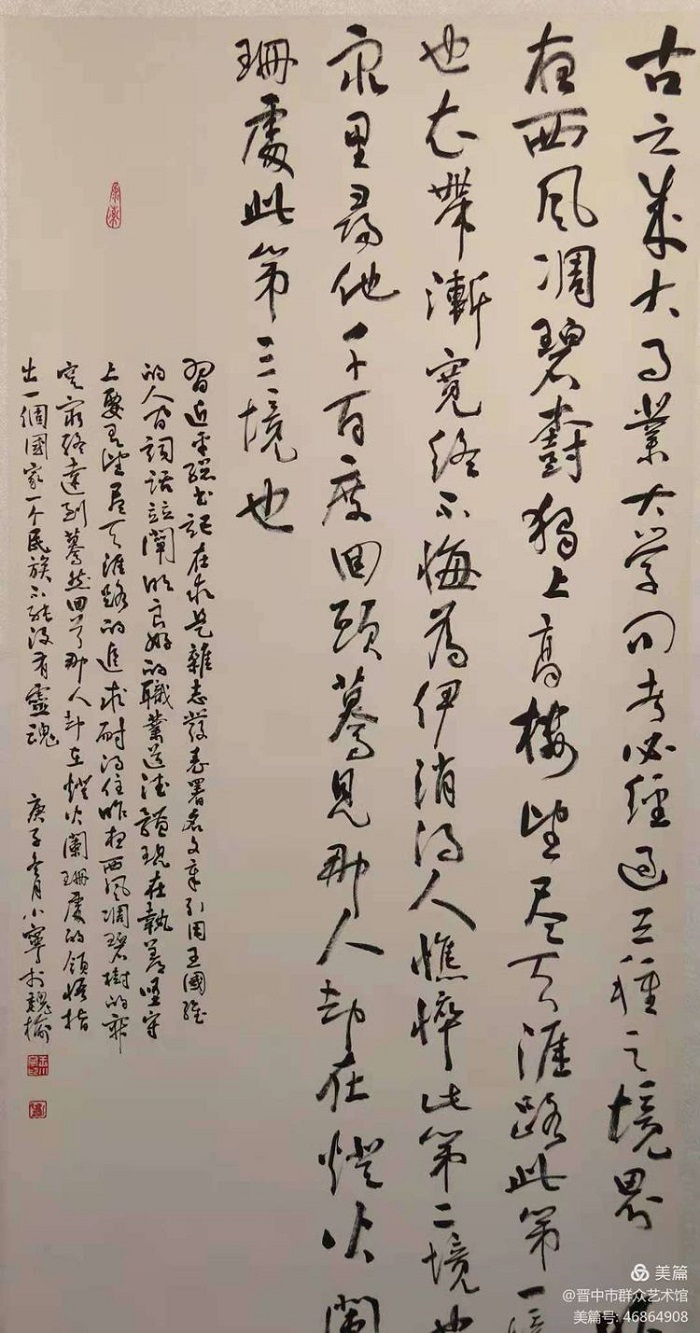 古之成大事業大学问者必經過三種之境界
夜西风凋碧樹獨上高樓望尽天涯路此第一境
也衣帶漸寬終不悔為伊消得人憔悴此第二境也
衆里尋他千百度回頭蓦見那人却在燈火闌
珊處此第三境也
習近平總书記在求是雜志發表署名文章引用王國維
的人间詞話闡明良好的職業道德體現在執着堅守
上要有望尽天涯路的追求耐得住昨夜西风凋碧樹的寂
寞最終達到蓦然回首那人却在燈火闌珊處的領悟指
出一個國家一个民族不能没有靈魂 庚子冬月小寧於魏榆
美篇
@晋中市群众艺术馆
美篇号: 46864908